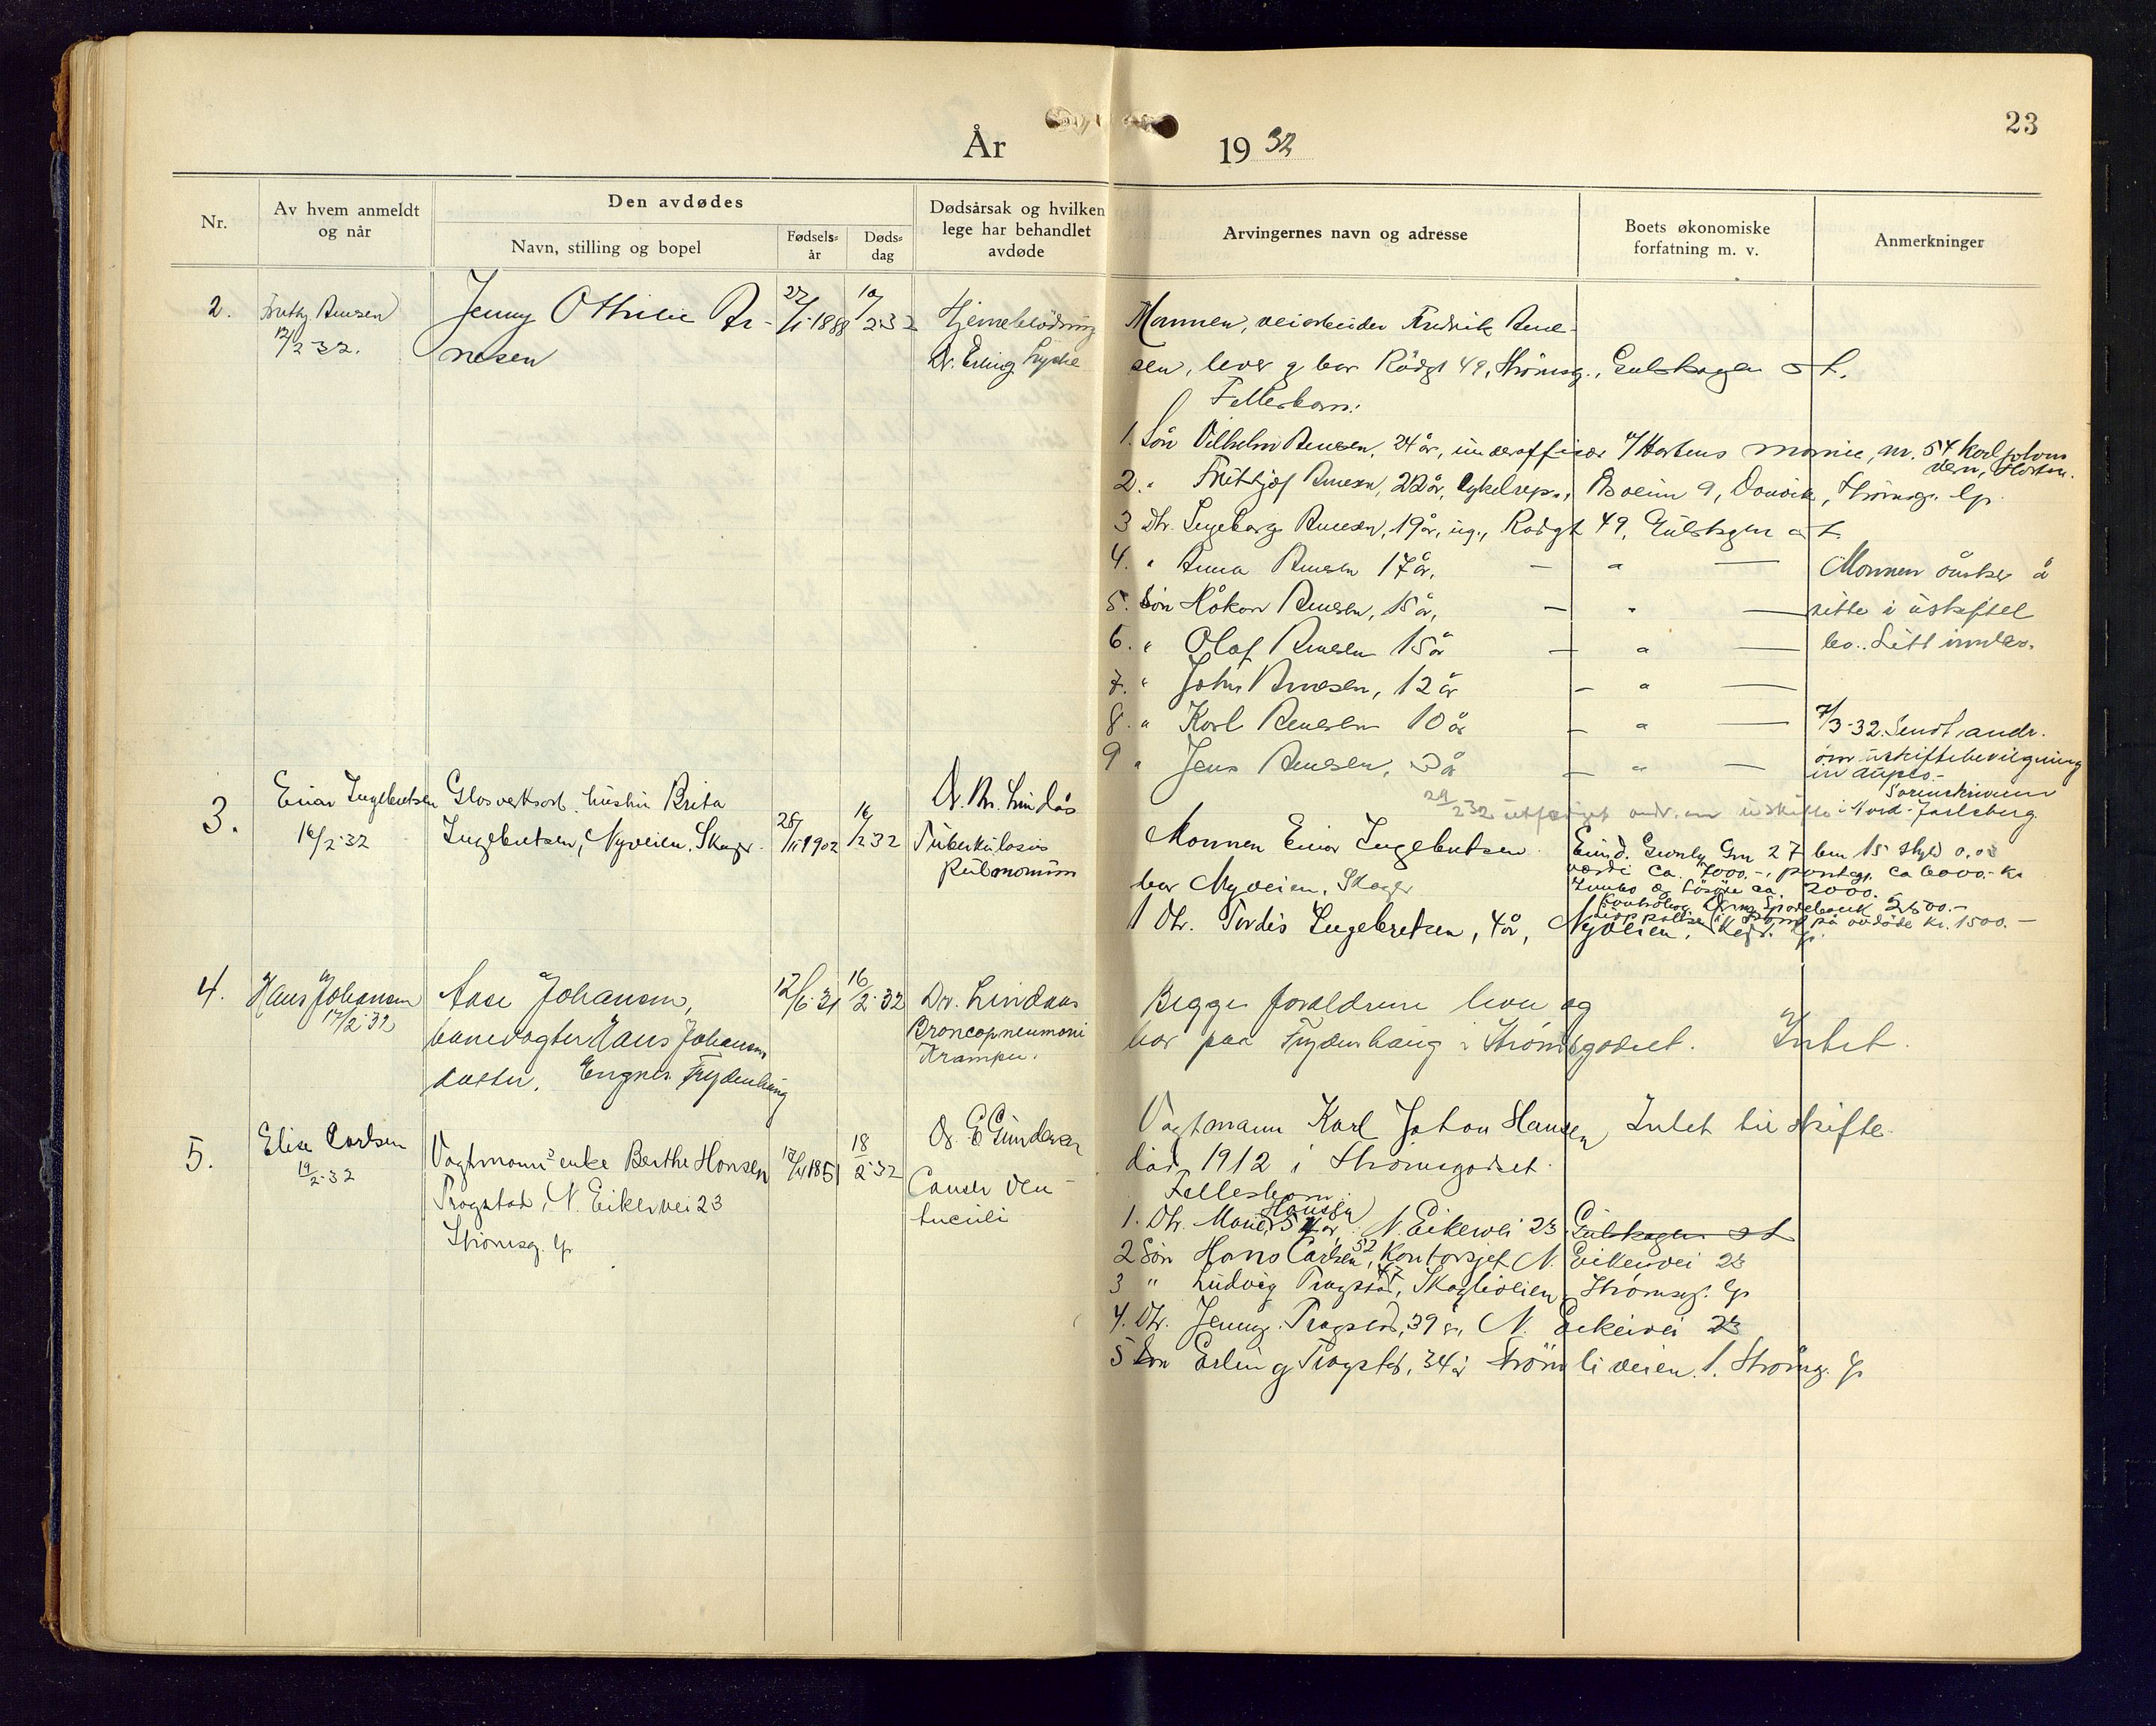 23
År 19 32
Nr.
Av hvem anmeldt og når
Den avdødes
Navn, stilling og bopel
Fødsels=år
Døds=dag
Dødsårsak og hvilken lege har behandlet avdøde
Arvingernes navn og adresse
Boets økonomiske forfatning m. v.
Anmerkninger
2.
12/2-32.
Jenny Othilie Ar-
nesen
27/1-1888
10/2-32
Hjerneblødning
Dr. Erling
Mannen, veiarbeider Fredrik Arne-
sen, lever og bor Rådgt 49, Strømsg., Gulskogen st.
Fellesbarn:
1. Søn Vilhelm Arnesen, 24 år, underofficer Hortens marine, nr. 54 Karljohans
vern, Horten.
2. " Frithjof Arnesen, 22 år, cykelrep., 9, Strømsg. lp.
3 Dtr. Ingeborg Arnesen, 19 år, ug., Rådgt 49, Gulskogen st.
4. " Anna Arnesen 17 år, — " —
5. Søn Håkon Arnesen, 15 år, — " —
6. " Olaf Arnesen 15 år — " —
7. " John Arnesen, 12 år — " —
8. " Karl Arnesen 10 år — " —
9 " Jens Arnesen, 3 år — " —
Mannen ønsker å
sitte i uskiftet
bo. Litt innbo.
7/3-32. Sendt andr.
om uskiftebevilgning
Sorenskriveren
i Nord-Jarlsberg
29/2 32 utferdiget andr. om uskifte
3.
Einar Ingebretsen
16/2-32
Glasverksarb. hustru Brita
Ingebretsen, Nyveien, Skoger
28/11 1902
16/2 32
Dr. Lindås
Tuberkulosis
pulmonum
Mannen Einar Ingebretsen
bor Nyveien, Skoger
1 Dtr. Tordis Ingebretsen, 4 år, Nyveien,
Eiend. Grn 27 bnr 15 skyld
verdi ca. 7000.-, pantegj. ca 6000.- kr
Innbo og løsøre ca. 2000.
Sparebank 2500.-
på avdøde kr. 1500.-
4.
Hans Johansen
17/2-32
Aase Johansen,
banevogter Hans Johansens
datter. Engnes Frydenhaug
12/6-31
16/2-32
Dr. Lindaas
Broncopneumoni
Kramper.
Begge foreldrene lever og
bor paa Frydenhaug i Strømsgodset.
Intet.
5.
Elise Carlsen
19/2-32
Vagtmanns enke Berthe Hansen
Trogstad, N. Eikervei 23
Strømsg. lp
1851
18/2-32
Dr. E Gundersen
Cancer ven-
triculi
Vagtmann Karl Johan Hansen,
død 1912 i Strømsgodset.
Intet til skifte.
Fellesbarn:
1. Dtr. Hansen år, N. Eikervei 23 Gulskogen st
2 Søn Hans Carlsen, 52 Kontorsjef N. Eikervei 23
3 " Ludvig Trogstad, 47 Skogliveien, Strømsg. lp
4. Dtr. Jenny Trogstad, 39 år, N. Eikervei 23
5 Søn Erling Trogstad, 34 år Strømliveien 1. Strømsg. lp